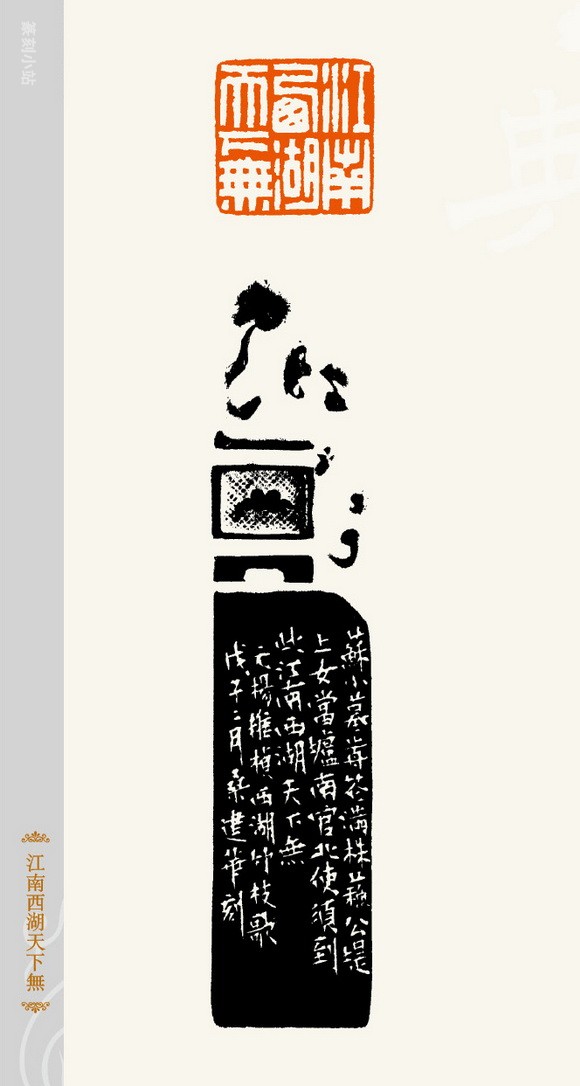 篆刻小站
江南
西湖
天下無
蘇小墓前花滿株蘇公堤
上女當壚南官北使須到
此江南西湖天下無
元楊維楨西湖竹枝歌
戊子二月桑建華刻
江南西湖天下無